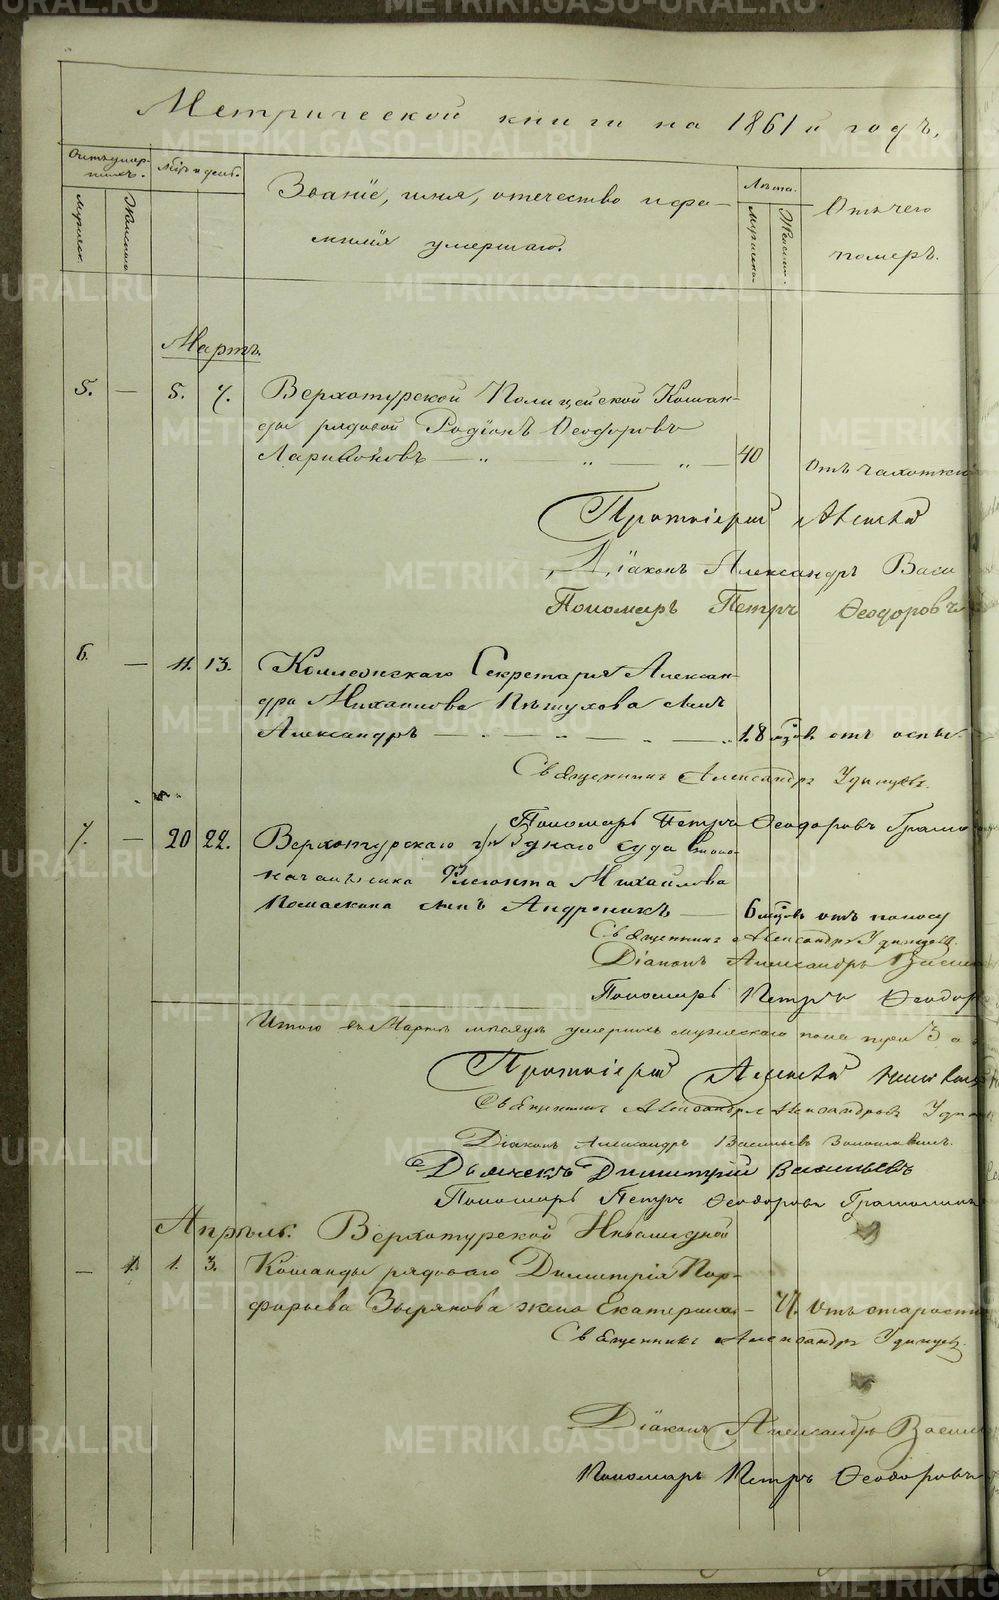 Метрической книги на 1861й годъ.
Счетъ умер-
шихъ.
Мѣс. и день.
Званіе, имя, отечество и фа-
милія умершаго.
Лѣта.
Отъ чего
померъ.
Мужеск.
Женскаго
Мужеска
Женска
Мартъ.
5. — 5. 7. Верхотурской Полицейской Коман-
ды рядовой Родіонъ Ѳеодоровъ
Ларивоновъ — 40 отъ чахотки
Протоіерей Алексѣй
Діаконъ Александръ Васи
Пономарь Петръ Ѳеодоровъ
6. — 11. 13. Коллежскаго Секретаря Алексан-
дра Михаилова Пѣтухова сынъ
Александръ — 1.8 мѣсяц. отъ оспы
Священникъ Александръ Удинцевъ.
Пономарь Петръ Ѳеодоровъ Грамо
7. — 20 22. Верхотурскаго уѣзднаго суда
начальника Михайлова
сынъ Андроникъ — 6 мѣсяцовъ отъ поносу
Священникъ Александръ Удинцевъ.
Діаконъ Александръ Васил
Пономарь Петръ Ѳеодор
Итого въ Мартѣ мѣсяцѣ умершихъ мужескаго пола три 3
Протоіерей Алексѣй
Священникъ Александръ Александровъ Удин
Діаконъ Александръ Васильевъ
Дьячекъ Димитрій Васильевъ
Пономарь Петръ Ѳеодоровъ Грамолин
Апрѣль. Верхотурской Инвалидной
— 1. 1. 3. Команды рядоваго Димитрія Пор-
фирьева Зырянова жена Екатерина — 71. Отъ старости
Священникъ Александръ Удинцевъ.
Діаконъ Александръ Васил
Пономарь Петръ Ѳеодоровъ
METRIKI.GASO-URAL.RU